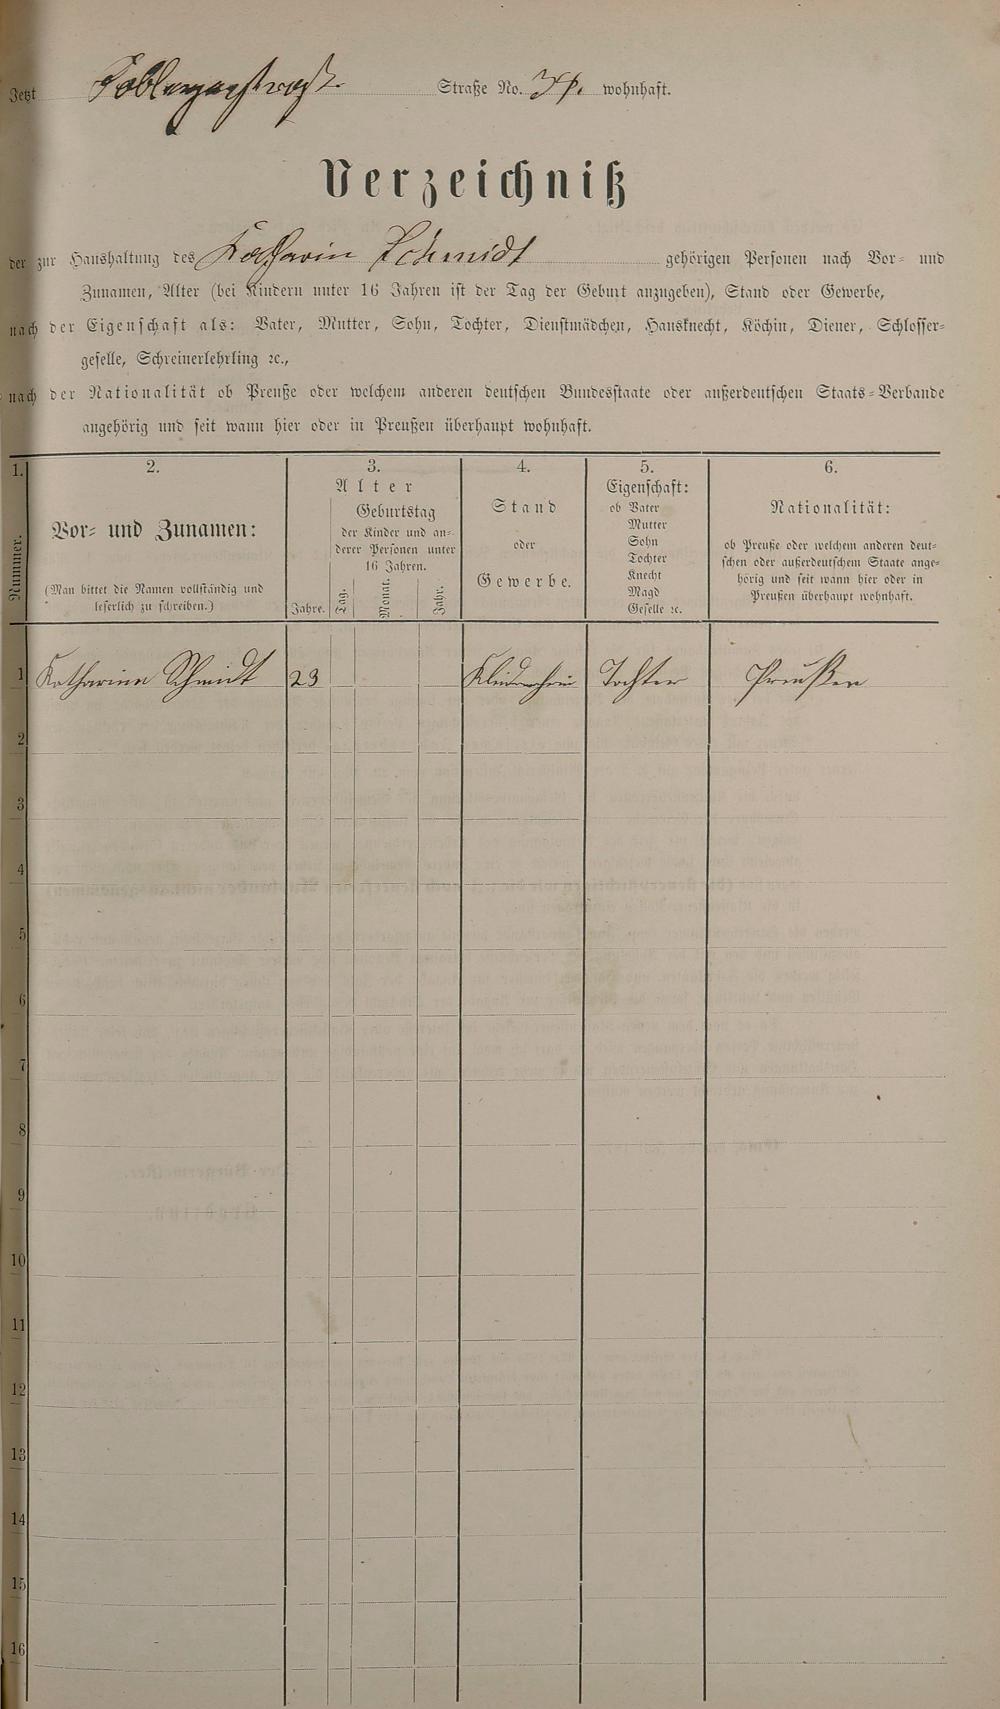 Jetzt Coblenzerstraße Straße No. 34. wohnhaft.
Verzeichniß
der zur Haushaltung des Katharina Schmidt gehörigen Personen nach Vor- und
Zunamen, Alter (bei Kindern unter 16 Jahren ist der Tag der Geburt anzugeben), Stand oder Gewerbe,
nach der Eigenschaft als: Vater, Mutter, Sohn, Tochter, Dienstmädchen, Hausknecht, Köchin, Diener, Schlosser-
geselle, Schreinerlehrling ꝛc.,
nach der Nationalität ob Preuße oder welchem anderen deutschen Bundesstaate oder außerdeutschen Staats-Verbande
angehörig und seit wann hier oder in Preußen überhaupt wohnhaft.
1.
Nummer.
2.
Vor- und Zunamen:
(Man bittet die Namen vollständig und
leserlich zu schreiben.)
3.
Alter
Jahre.
Geburtstag
der Kinder und an-
derer Personen unter
16 Jahren.
Tag.
Monat.
Jahr.
4.
Stand
oder
Gewerbe.
5.
Eigenschaft:
ob Vater
Mutter
Sohn
Tochter
Knecht
Magd
Geselle ꝛc.
6.
Nationalität:
ob Preuße oder welchem anderen deut-
schen oder außerdeutschem Staate ange-
hörig und seit wann hier oder in
Preußen überhaupt wohnhaft.
1 Katharina Schmidt 23 Tochter Preußen
2
3
4
5
6
7
8
9
10
11
12
13
14
15
16